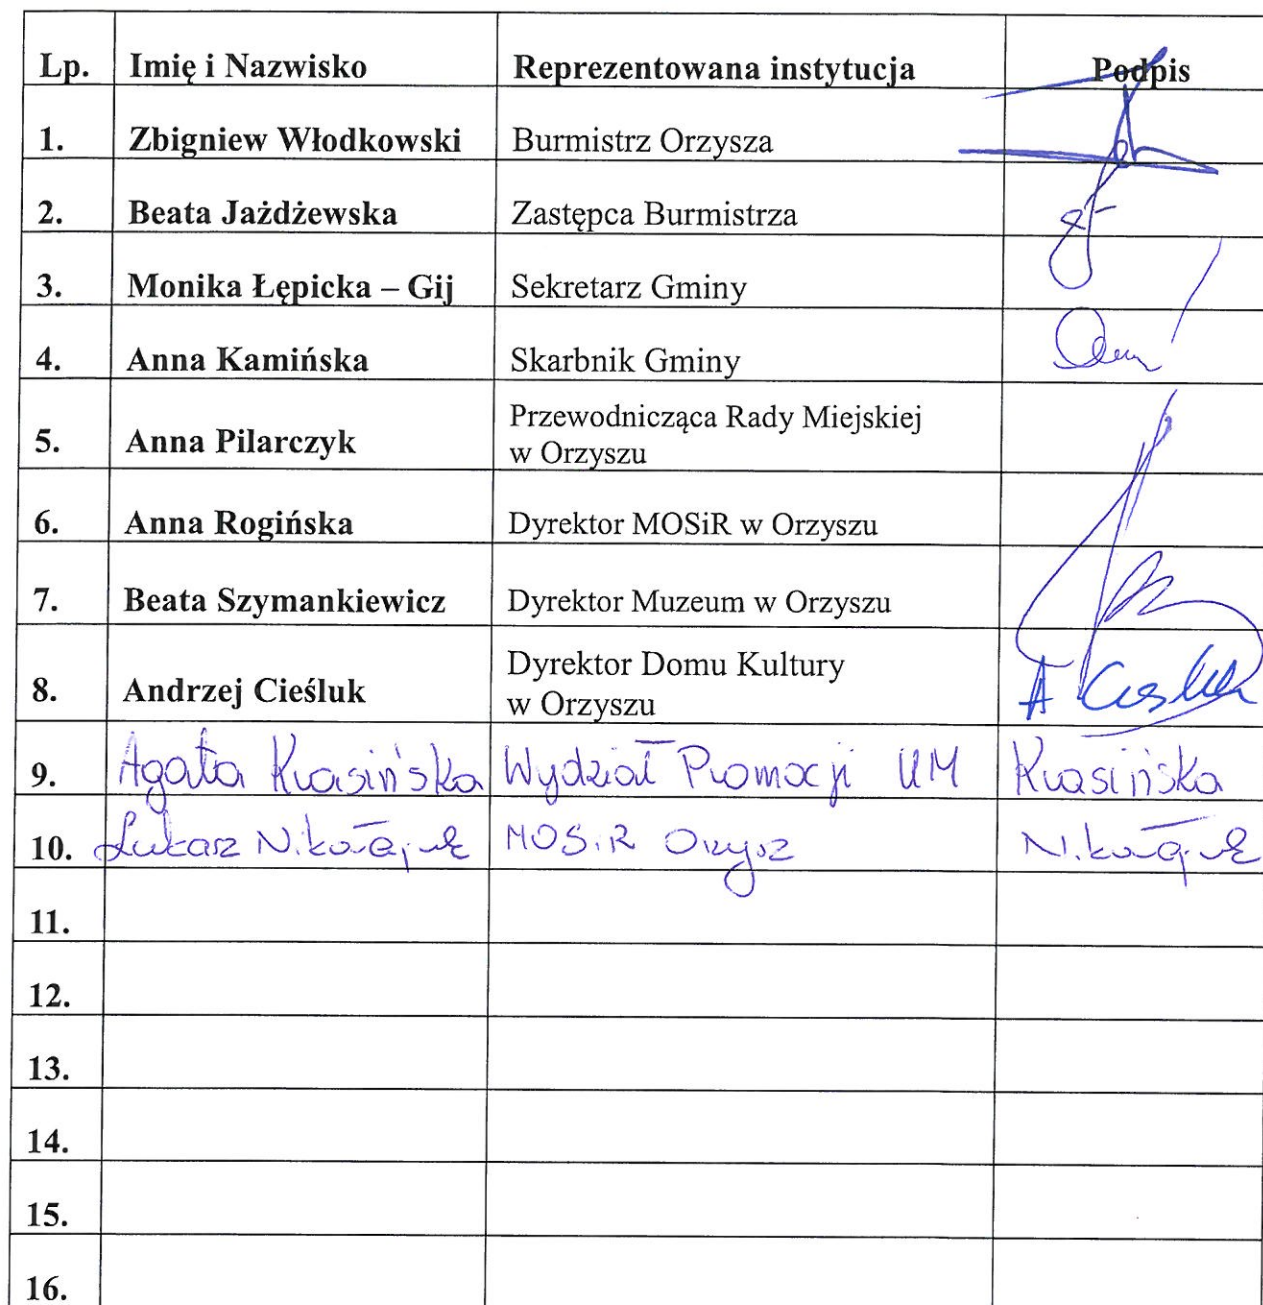 Lp. Imię i Nazwisko Reprezentowana instytucja Podpis
1. Zbigniew Włodkowski Burmistrz Orzysza
2. Beata Jażdżewska Zastępca Burmistrza
3. Monika Łępicka – Gij Sekretarz Gminy
4. Anna Kamińska Skarbnik Gminy
5. Anna Pilarczyk Przewodnicząca Rady Miejskiej
w Orzyszu
6. Anna Rogińska Dyrektor MOSiR w Orzyszu
7. Beata Szymankiewicz Dyrektor Muzeum w Orzyszu
8. Andrzej Cieśluk Dyrektor Domu Kultury
w Orzyszu A Cieśluk
9. Agata Krasińska Wydział Promocji UM Krasińska
10. Łukasz Nikołajuk MOSiR Orzysz Nikołajuk
11.
12.
13.
14.
15.
16.